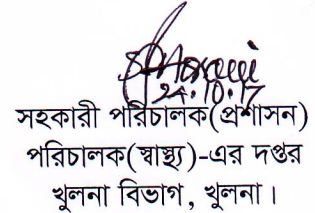 24.10.17
সহকারী পরিচালক(প্রশাসন)
পরিচালক(স্বাস্থ্য)-এর দপ্তর
খুলনা বিভাগ, খুলনা।